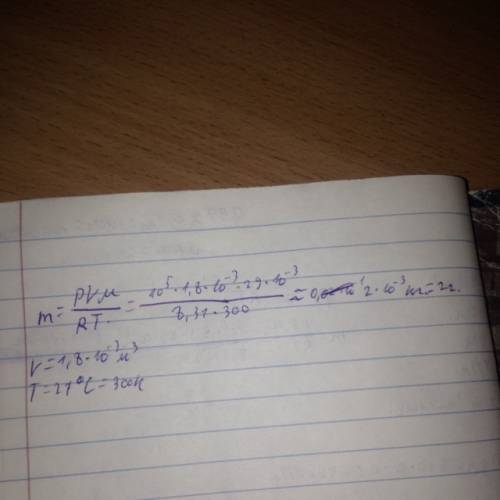 m = pVμ / RT = 10⁵·1,8·10⁻³·29·10⁻³ / 8,31·300 ≈ 2·10⁻³ кг = 2г.
V = 1,8·10⁻³ м³
T = 27°C = 300K